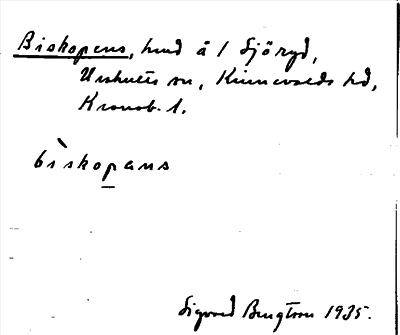 Biskopens, hmd å 1 Sjöryd,
Urshults sn, Kinnevalds hd,
Kronob. l.
bìskopans
Sigurd Bengtson 1935.